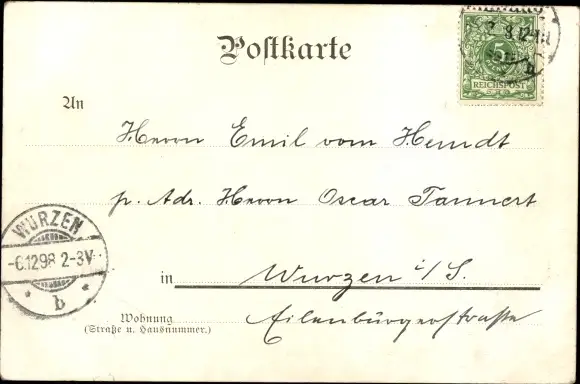 Postkarte
5
REICHSPOST
8.12
b
An
Herrn Emil vom Hemdt
p. Adr. Herrn Oscar Tannert
WURZEN
-6.12.98 2-3V.
* b *
in Wurzen i/S.
Wohnung
(Straße u. Hausnummer.)
Eilenbürgerstraße